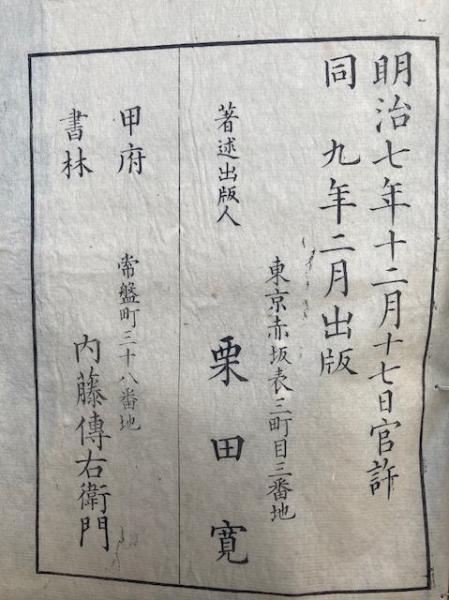 明治七年十二月十七日官許
同 九年二月出版
東京赤坂表三町目三番地
著述出版人 栗田寛
甲府 常盤町三十八番地
書林 内藤傳右衛門